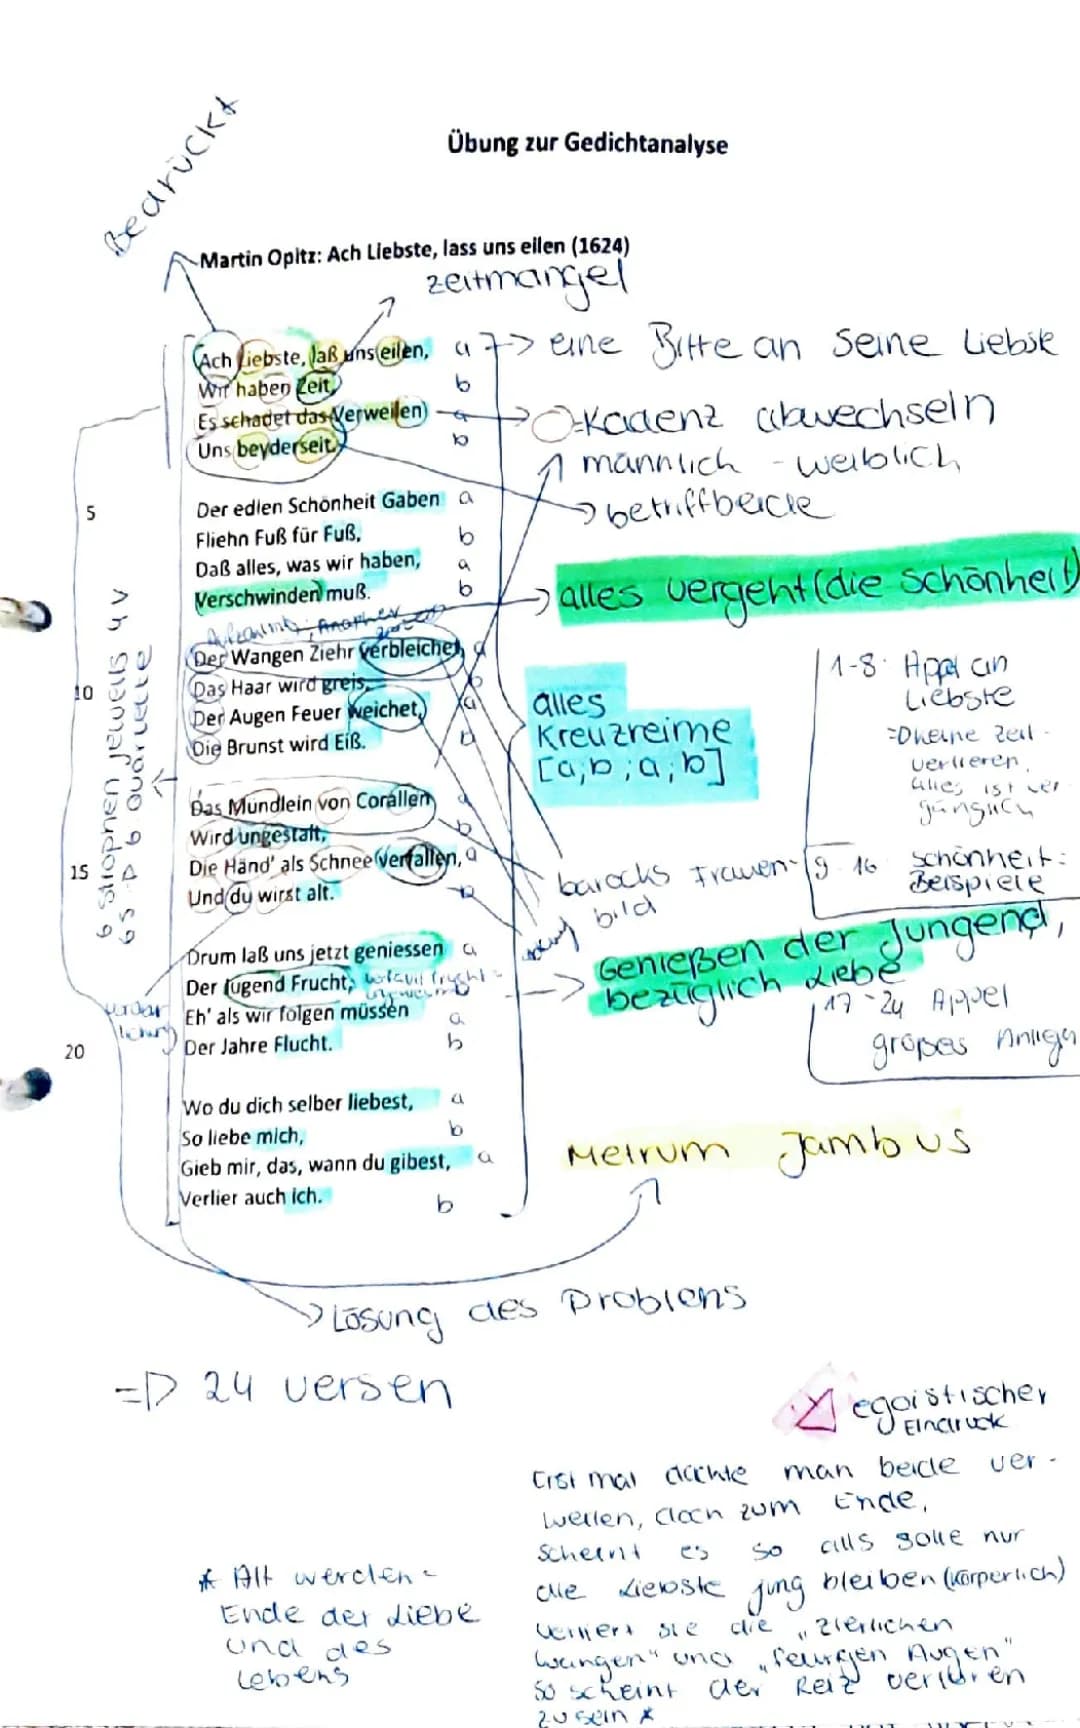 Bedrückt
Übung zur Gedichtanalyse
Martin Opitz: Ach Liebste, lass uns eilen (1624)
zeitmangel
Ach Liebste, laß uns eilen, a
-> eine Bitte an seine Liebste
Wir haben Zeit, b
Es schadet das Verweilen a
Kadenz abwechseln
Uns beyderseit. b
männlich - weiblich
betrifft beide
5 Der edlen Schönheit Gaben a
Fliehn Fuß für Fuß, b
Daß alles, was wir haben, a
Verschwinden muß. b
alles vergeht (die Schönheit)
Aufzählung, Anapher
Der Wangen Ziehr verbleichet, a
10 Das Haar wird greis, b
Der Augen Feuer weichet, a
Die Brunst wird Eiß. b
alles
Kreuzreime
[a;b;a;b]
6 Strophen jeweils 4 V
6 S => 6 Quartette
1-8: Appel an
Liebste
=> keine Zeit
verlieren,
alles ist ver-
gänglich
Das Mündlein von Corallen a
Wird ungestalt, b
15 Die Händ' als Schnee verfallen, a
Und du wirst alt. b
barocks Frauen-
bild
9-16 Schönheit:
Beispiele
Drum laß uns jetzt geniessen a
Der Jugend Frucht,
Eh' als wir folgen müssen a
20 Der Jahre Flucht. b
Genießen der Jungend,
bezüglich Liebe
17-24 Appel
großes Anliegn
Wo du dich selber liebest, a
So liebe mich, b
Gieb mir, das, wann du gibest, a
Verlier auch ich. b
Metrum Jambus
Lösung des Problems
=> 24 versen
egoistischer
Eindruck
Erst mal dachte man beide ver-
weilen, doch zum Ende,
scheint es so als solle nur
die Liebste jung bleiben (körperlich)
verliert sie die „zierlichen
Wangen" und „feurigen Augen"
so scheint der Reiz verloren
zu sein *
* Alt werden -
Ende der Liebe
und des
Lebens